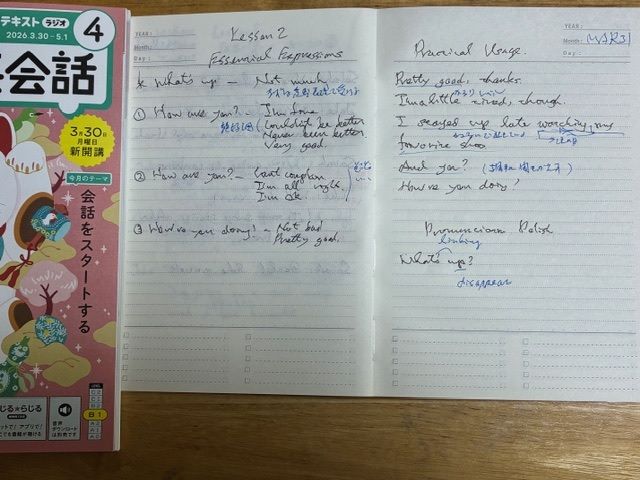 テキスト ラジオ
2026.3.30-5.1
4
会話
3月30日
月曜日
新開講
今月のテーマ
会話をスタートする
音声
ダウンロード
は別売です
LEVEL
C2
C1
B2
B1
A2
A1
A0
Lesson 2
Essential Expressions
* What's up - Not much
① How are you? - I'm fine
絶好調
Couldn't be better
Never been better.
Very good.
② How are you? - Can't complain
I'm all right.
I'm OK.
③ How're you doing? - Not bad
Pretty good.
YEAR :
Month :
Day :
YEAR :
Month : MAR 31
Day :
Practical Usage.
Pretty good, thanks.
I'm a little tired, though.
I stayed up late watching my
favorite show.
And you?
How're you doing?
Pronunciation Polish
linking
What's up?
disappear